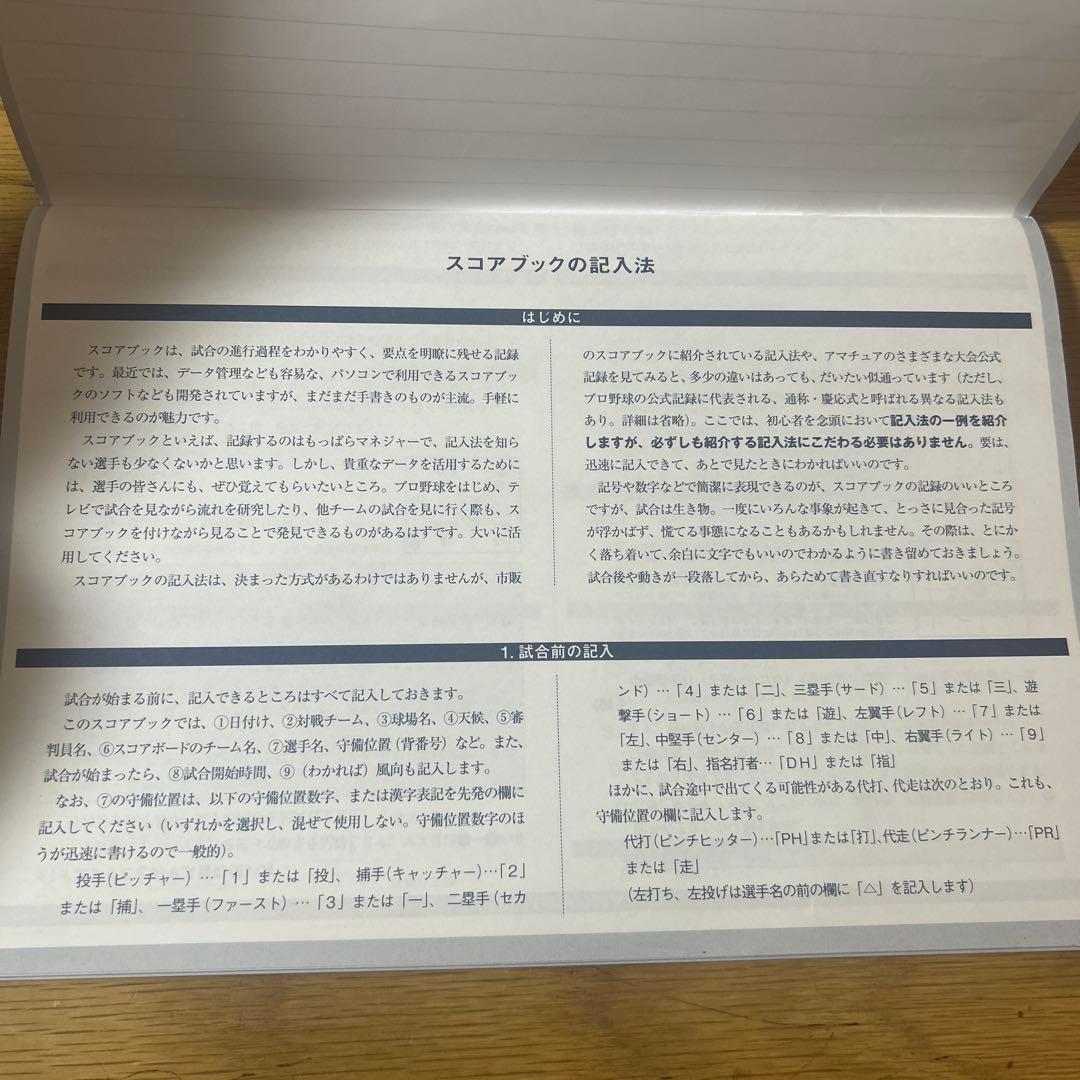 スコアブックの記入法
はじめに
スコアブックは、試合の進行過程をわかりやすく、要点を明瞭に残せる記録
です。最近では、データ管理なども容易な、パソコンで利用できるスコアブッ
クのソフトなども開発されていますが、まだまだ手書きのものが主流。手軽に
利用できるのが魅力です。
スコアブックといえば、記録するのはもっぱらマネジャーで、記入法を知ら
ない選手も少なくないかと思います。しかし、貴重なデータを活用するために
は、選手の皆さんにも、ぜひ覚えてもらいたいところ。プロ野球をはじめ、テ
レビで試合を見ながら流れを研究したり、他チームの試合を見に行く際も、ス
コアブックを付けながら見ることで発見できるものがあるはずです。大いに活
用してください。
スコアブックの記入法は、決まった方式があるわけではありませんが、市販
のスコアブックに紹介されている記入法や、アマチュアのさまざまな大会公式
記録を見てみると、多少の違いはあっても、だいたい似通っています（ただし、
プロ野球の公式記録に代表される、通称・慶応式と呼ばれる異なる記入法も
あり。詳細は省略）。ここでは、初心者を念頭において記入法の一例を紹介
しますが、必ずしも紹介する記入法にこだわる必要はありません。要は、
迅速に記入できて、あとで見たときにわかればいいのです。
記号や数字などで簡潔に表現できるのが、スコアブックの記録のいいところ
ですが、試合は生き物。一度にいろんな事象が起きて、とっさに見合った記号
が浮かばず、慌てる事態になることもあるかもしれません。その際は、とにか
く落ち着いて、余白に文字でもいいのでわかるように書き留めておきましょう。
試合後や動きが一段落してから、あらためて書き直すなりすればいいのです。
1. 試合前の記入
試合が始まる前に、記入できるところはすべて記入しておきます。
このスコアブックでは、①日付け、②対戦チーム、③球場名、④天候、⑤審
判員名、⑥スコアボードのチーム名、⑦選手名、守備位置（背番号）など。また、
試合が始まったら、⑧試合開始時間、⑨（わかれば）風向も記入します。
なお、⑦の守備位置は、以下の守備位置数字、または漢字表記を先発の欄に
記入してください（いずれかを選択し、混ぜて使用しない。守備位置数字のほ
うが迅速に書けるので一般的）。
投手（ピッチャー）…「1」または「投」、捕手（キャッチャー）…「2」
または「捕」、一塁手（ファースト）…「3」または「一」、二塁手（セカ
ンド）…「4」または「二」、三塁手（サード）…「5」または「三」、遊
撃手（ショート）…「6」または「遊」、左翼手（レフト）…「7」または
「左」、中堅手（センター）…「8」または「中」、右翼手（ライト）…「9」
または「右」、指名打者…「DH」または「指」
ほかに、試合途中で出てくる可能性がある代打、代走は次のとおり。これも、
守備位置の欄に記入します。
代打（ピンチヒッター）…「PH」または「打」、代走（ピンチランナー）…「PR」
または「走」
（左打ち、左投げは選手名の前の欄に「△」を記入します）